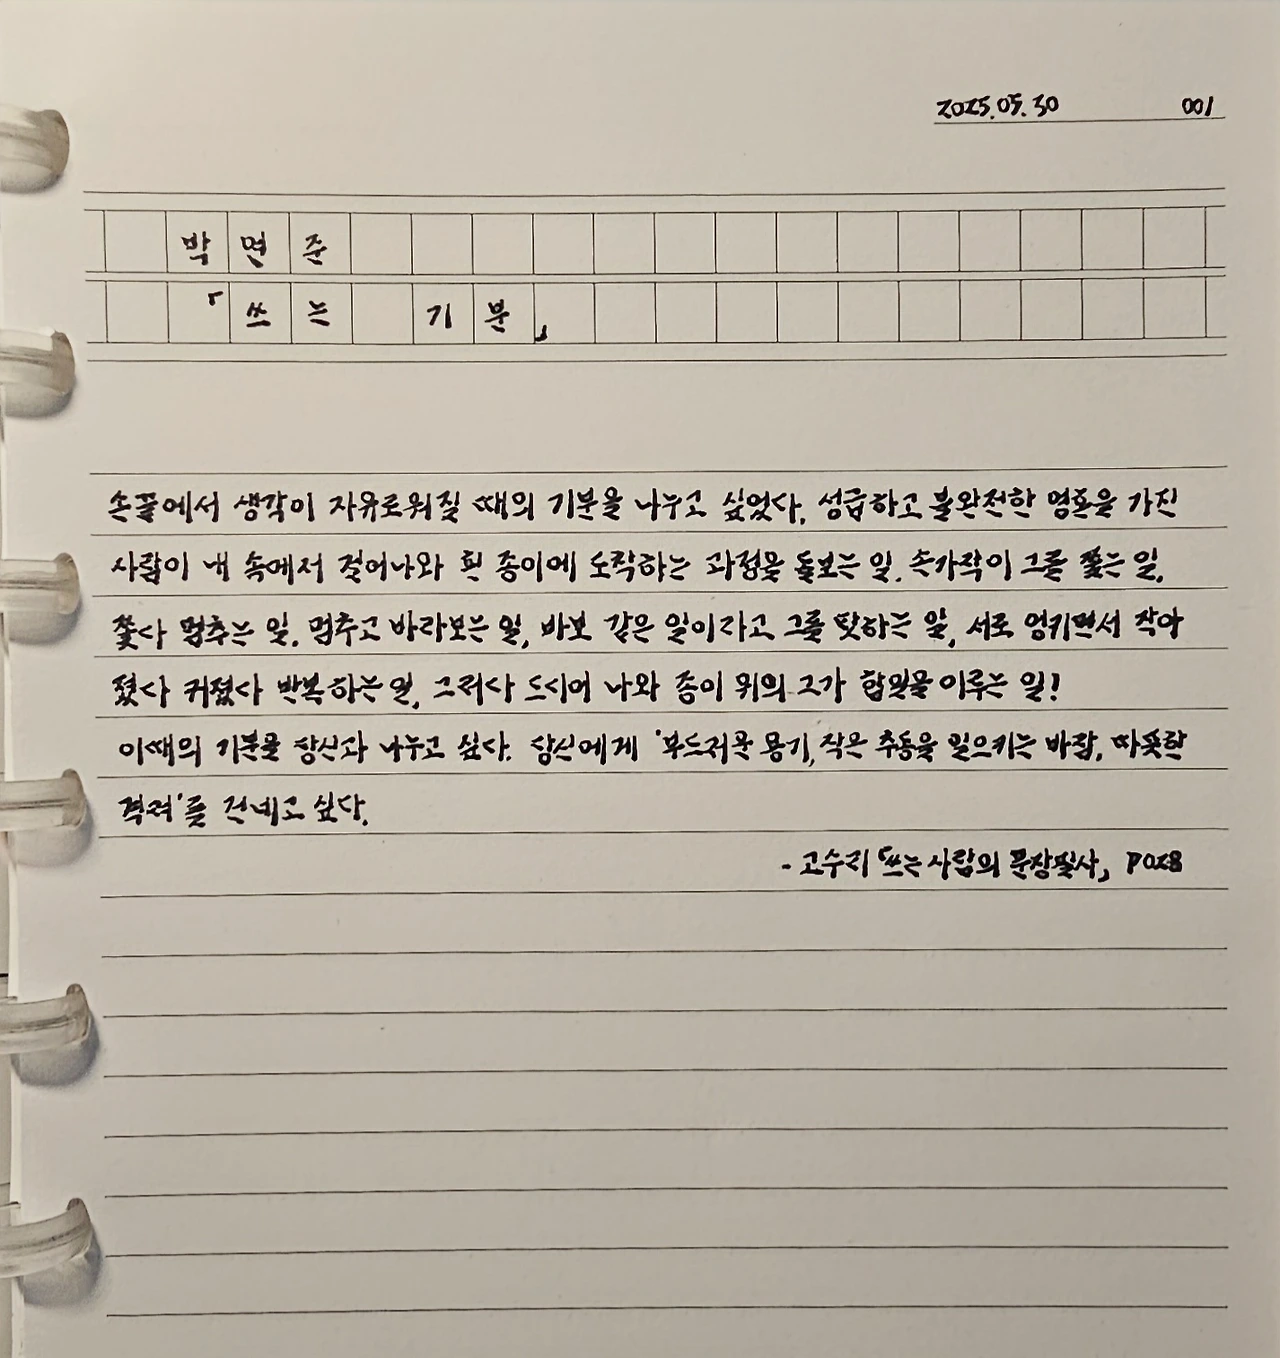 2025.05.30 001
박연준
「쓰는 기분」
손끝에서 생각이 자유로워질 때의 기분을 나누고 싶었다. 성급하고 불완전한 영혼을 가진
사람이 내 속에서 걸어나와 흰 종이에 도착하는 과정을 돌보는 일. 손가락이 그를 쫓는 일,
쫓다 멈추는 일. 멈추고 바라보는 일, 바보 같은 일이라고 그를 탓하는 일, 서로 엉키면서 작아
졌다 커졌다 반복하는 일, 그러다 드디어 나와 종이 위의 그가 합일을 이루는 일!
이때의 기분을 당신과 나누고 싶다. 당신에게 '부드러운 용기, 작은 추동을 일으키는 바람, 따뜻한
격려'를 건네고 싶다.
- 고수리 「쓰는 사람의 문장필사」 P028